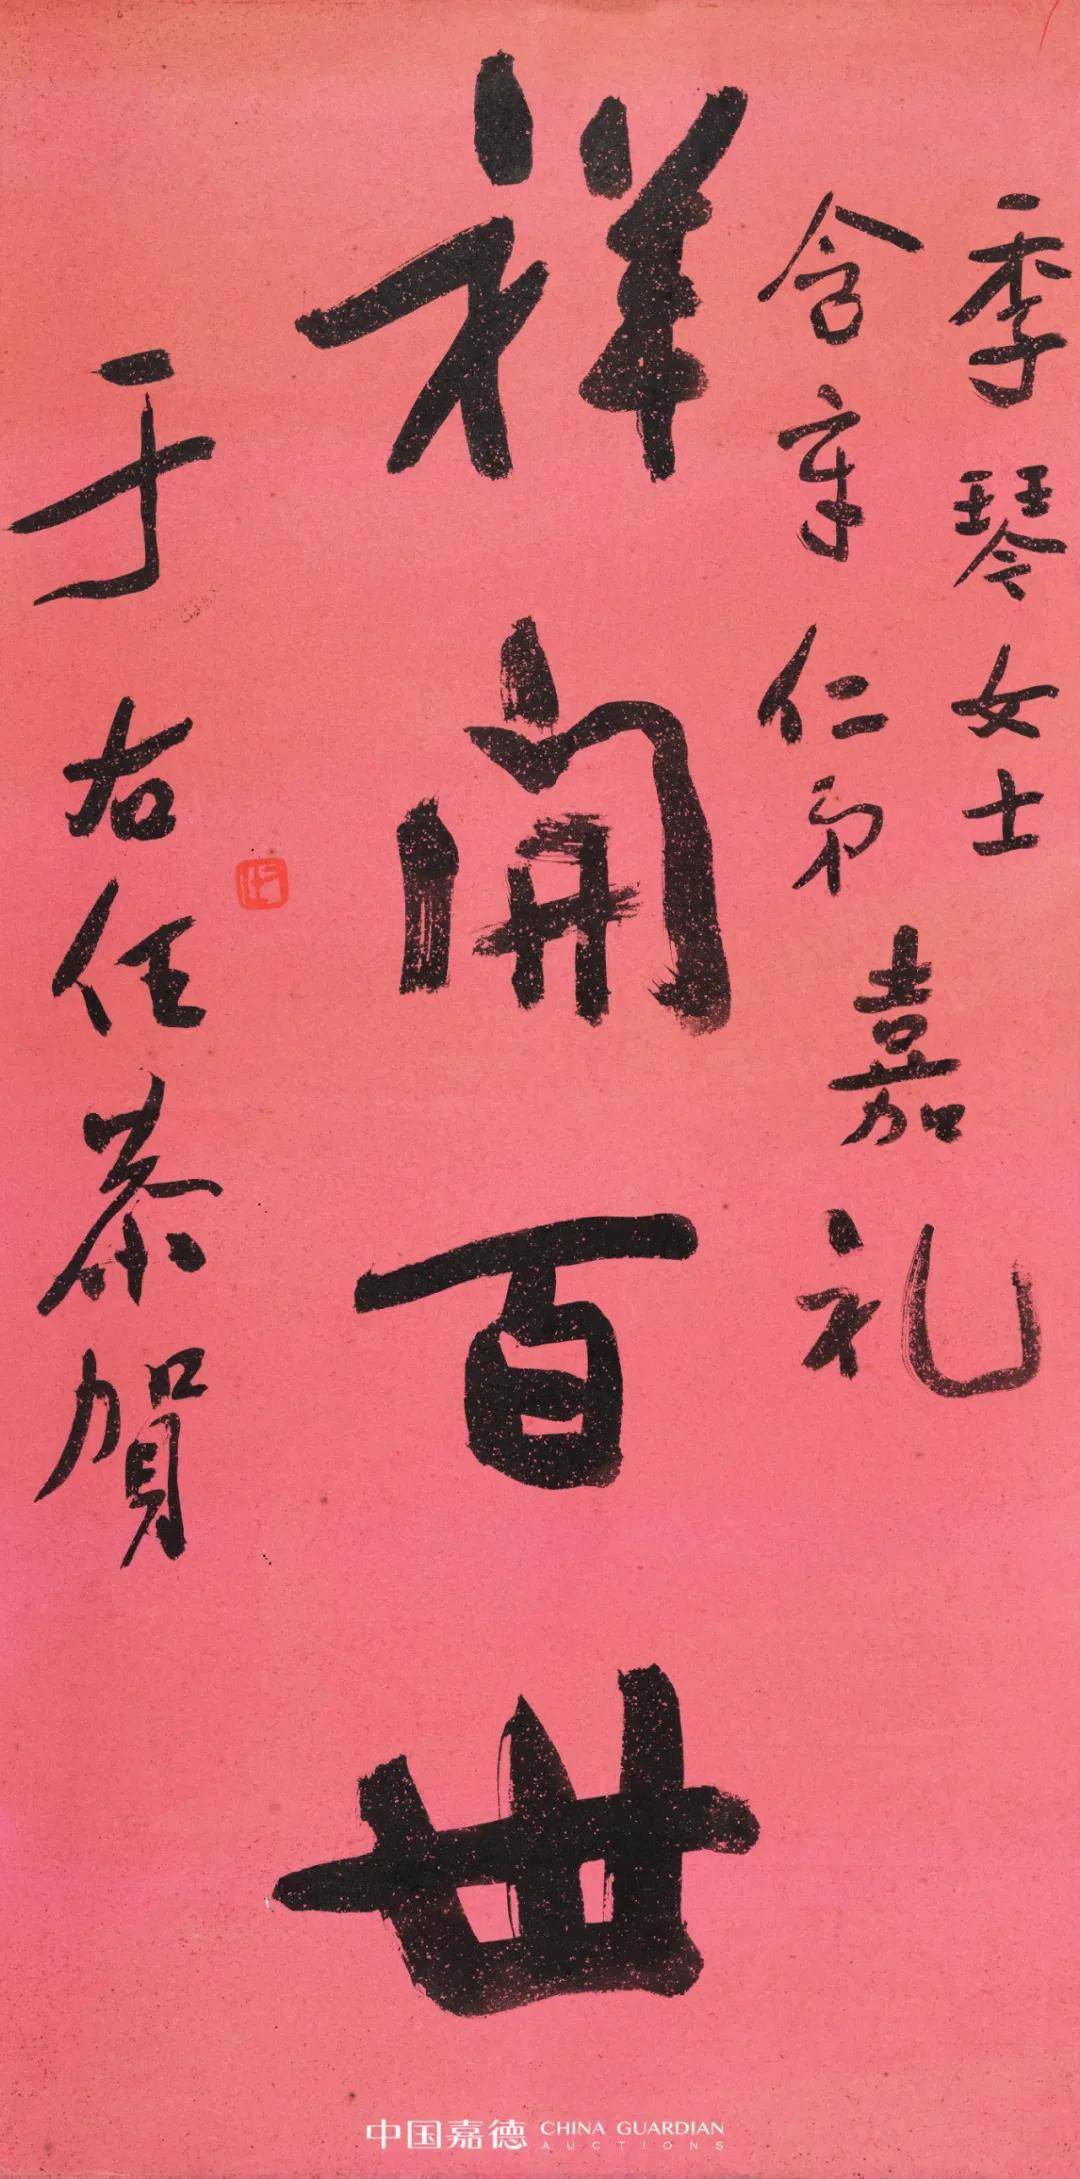 季琴女士
含章仁弟
嘉礼
祥開百世
于右任恭賀
中国嘉德 CHINA GUARDIAN
AUCTIONS